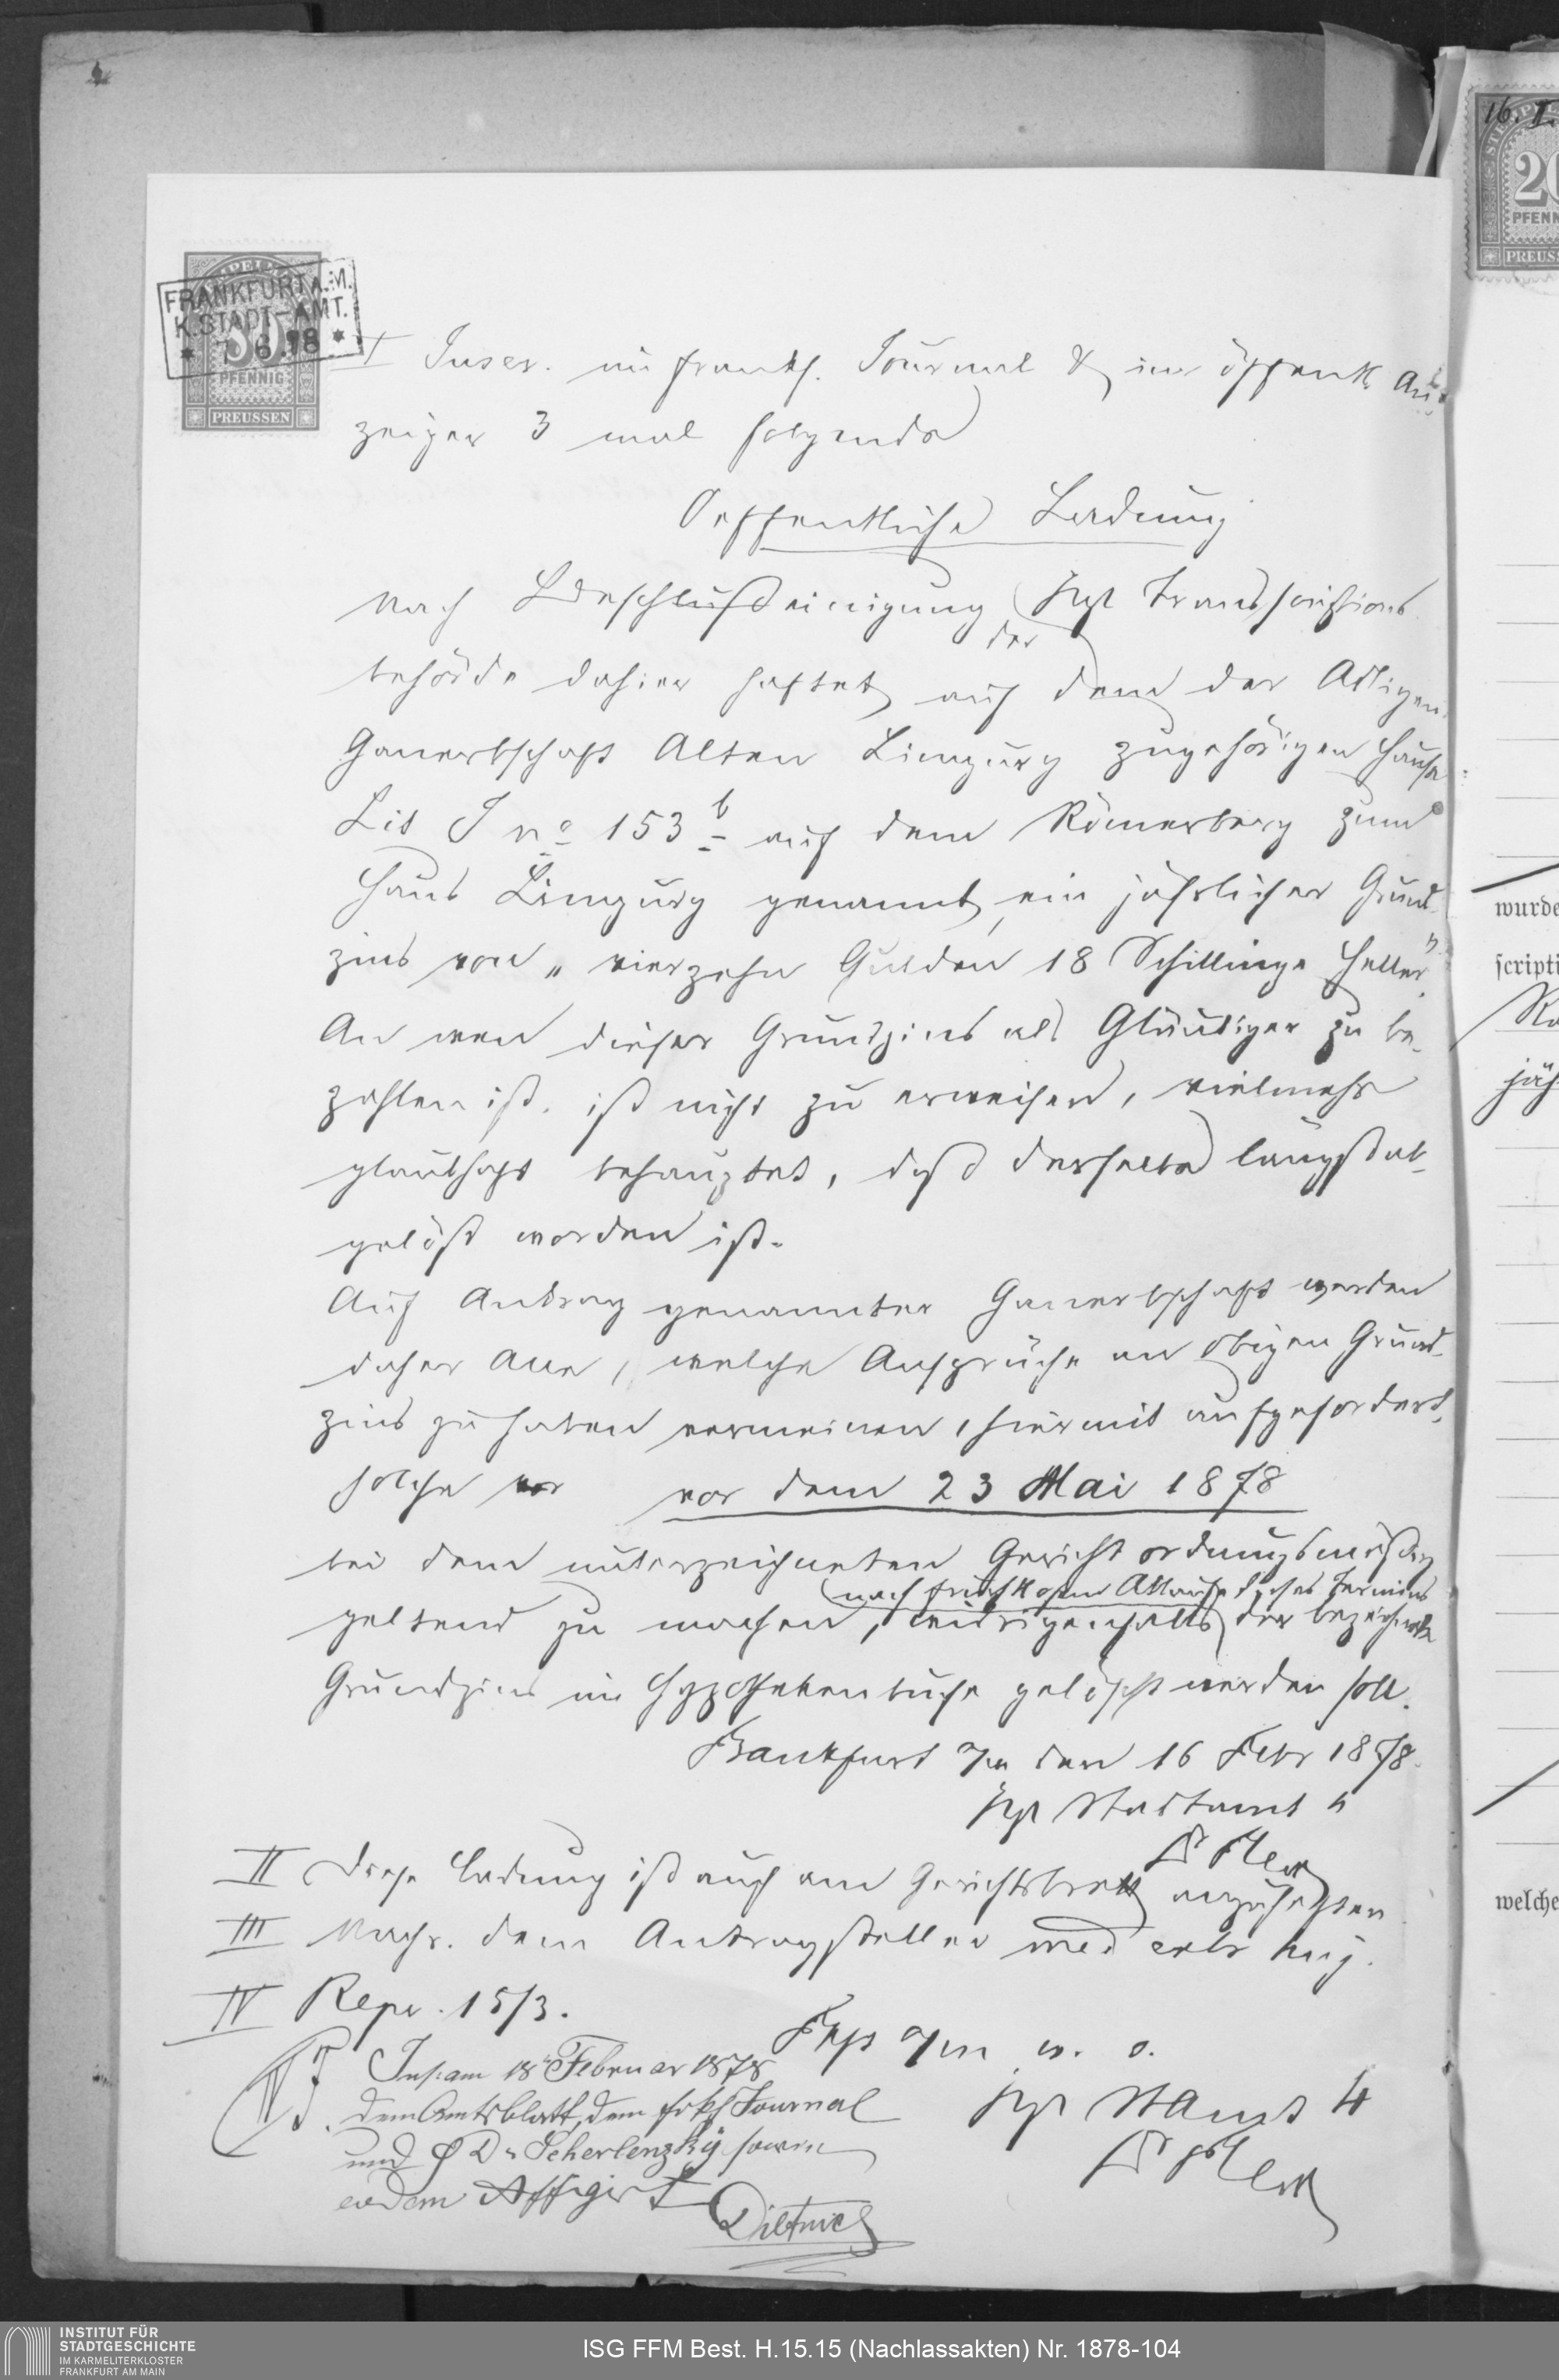 16. II.
STEMPEL
20
PFENN
PREUSS
FRANKFURT A. M.
K. STADT-AMT.
* 7 6.78 *
30
PFENNIG
PREUSSEN
I Inser. im frankf. Journal & im öffentl. An-
zeiger 3 mal folgende
Oeffentliche Ladung
Nach Bescheinigung Kgl Transscriptions
behörde dahier haftet auf dem der Adligen
der
Ganerbschaft Alten Limpurg zugehörigen Hause
Lit J No 153 b auf dem Römerberg zum
Haus Limpurg genannt, ein jährlicher Grund-
zins von „vierzehn Gulden 18 Schillinge Heller"
An wen dieser Grundzins als Gläubiger zu be-
zahlen ist, ist nicht zu erweisen, vielmehr
glaubhaft behauptet, daß derselbe längst ab-
gelöst worden ist.
Auf Antrag genannter Ganerbschaft werden
daher Alle, welche Ansprüche an obigen Grund-
zins zu haben vermeinen, hiermit aufgefordert,
solche vor dem 23 Mai 1878
bei dem unterzeichneten Gericht ordnungsmäßig
nach fruchtlosem Ablauf dieses Termins
geltend zu machen, widrigenfalls der bezeichnete
Grundzins im Hypothekenbuche gelöscht werden soll.
Frankfurt a/m den 16 Febr 1878.
Kgl Stadtamt 4
II Diese Ladung ist auch am Gerichtsbrett anzuheften
III Nachr. dem Antragsteller
IV Repr. 15/3.
Frkft a/m w. o.
Kgl StAmt 4
Ins. am 18 Februar 1878
dem Amtsblatt, dem frkf Journal
und D. Scherlenzky sowie
eodem Affigirt
Dietrich
wurde
scripti
jäh
welche
INSTITUT FÜR
STADTGESCHICHTE
IM KARMELITERKLOSTER
FRANKFURT AM MAIN
ISG FFM Best. H.15.15 (Nachlassakten) Nr. 1878-104